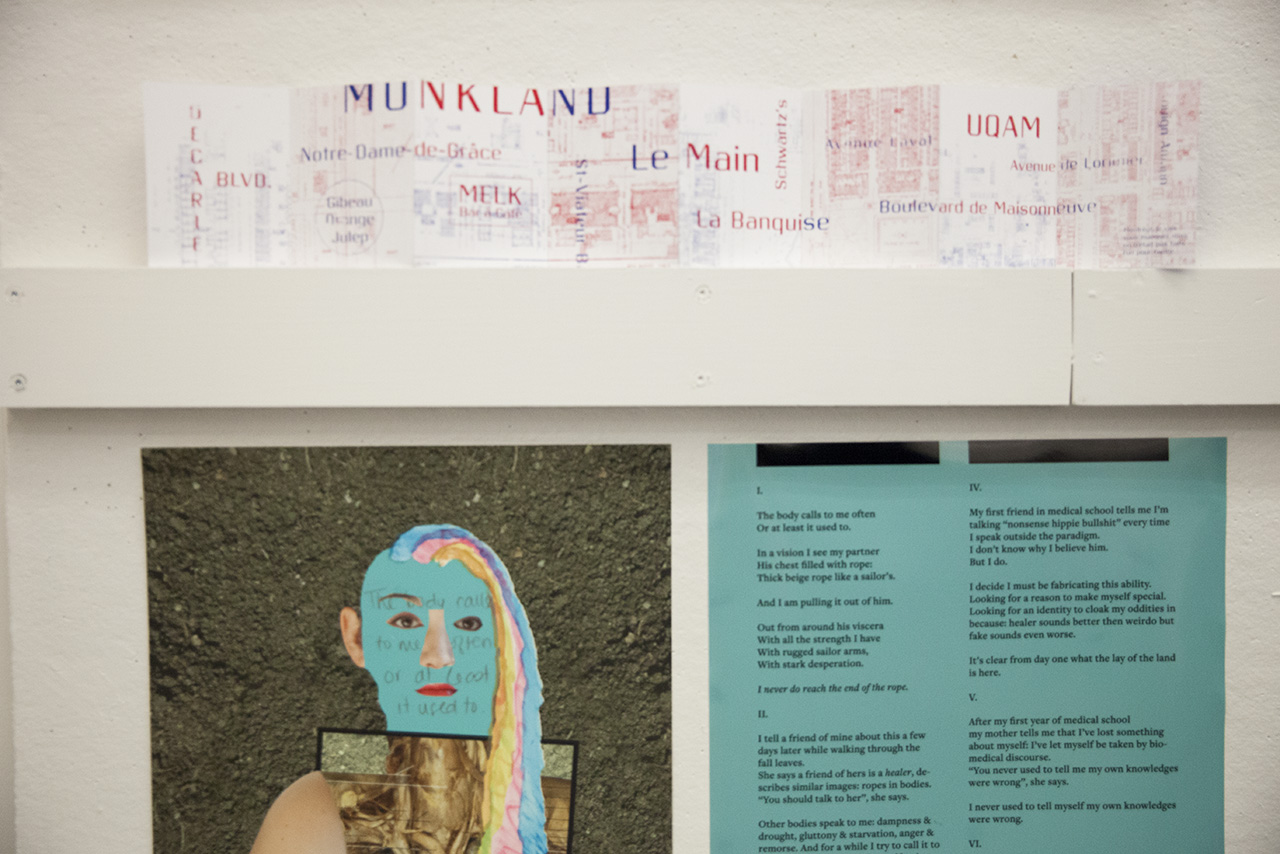 MUNKLAND
DECARIE
BLVD.
Notre-Dame-de-Grâce
Gibeau
Orange
Julep
MELK
Bar à Café
St-Viateur B
Le Main
Schwartz's
La Banquise
Avenue Laval
UQAM
Avenue de Lorimier
Boulevard de Maisonneuve
The body calls
to me often
or at least
it used to.
I.
The body calls to me often
Or at least it used to.
In a vision I see my partner
His chest filled with rope:
Thick beige rope like a sailor's.
And I am pulling it out of him.
Out from around his viscera
With all the strength I have
With rugged sailor arms,
With stark desperation.
I never do reach the end of the rope.
II.
I tell a friend of mine about this a few
days later while walking through the
fall leaves.
She says a friend of hers is a healer, de-
scribes similar images: ropes in bodies.
“You should talk to her”, she says.
Other bodies speak to me: dampness &
drought, gluttony & starvation, anger &
remorse. And for a while I try to call it to
IV.
My first friend in medical school tells me I'm
talking “nonsense hippie bullshit” every time
I speak outside the paradigm.
I don't know why I believe him.
But I do.
I decide I must be fabricating this ability.
Looking for a reason to make myself special.
Looking for an identity to cloak my oddities in
because: healer sounds better then weirdo but
fake sounds even worse.
It's clear from day one what the lay of the land
is here.
V.
After my first year of medical school
my mother tells me that I've lost something
about myself: I've let myself be taken by bio-
medical discourse.
“You never used to tell me my own knowledges
were wrong”, she says.
I never used to tell myself my own knowledges
were wrong.
VI.